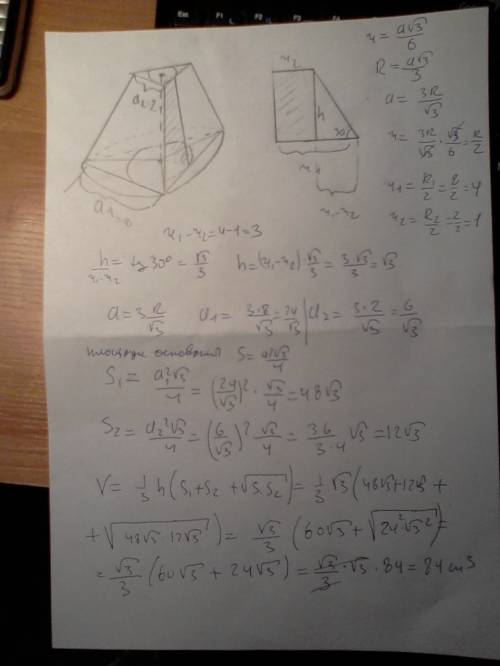 r = a√3/6
R = a√3/3
a = 3R/√3
r = 3R/√3 · √3/6 = R/2
r1 = R1/2 = 8/2 = 4
r2 = R2/2 = 2/2 = 1
r2
h
30°
r1
r1-r2
r1-r2=4-1=3
h/r1-r2 = tg 30° = √3/3 h=(r1-r2)·√3/3 = 3√3/3 = √3
a = 3R/√3 a1 = 3·8/√3 = 24/√3 | a2 = 3·2/√3 = 6/√3
площади основания S = a²√3/4
S1 = a1²√3/4 = (24/√3)² · √3/4 = 48√3
S2 = a2²√3/4 = (6/√3)² · √3/4 = 36/3·4 √3 = 12√3
V = 1/3 h(S1+S2 + √S1S2) = 1/3 √3(48√3+12√3 +
+ √48√3·12√3) = √3/3 (60√3 + √24²√3²) =
= √3/3 (60√3 + 24√3) = √3/3 ·√3 · 84 = 84 cm³
Esc
F1
F2
F3